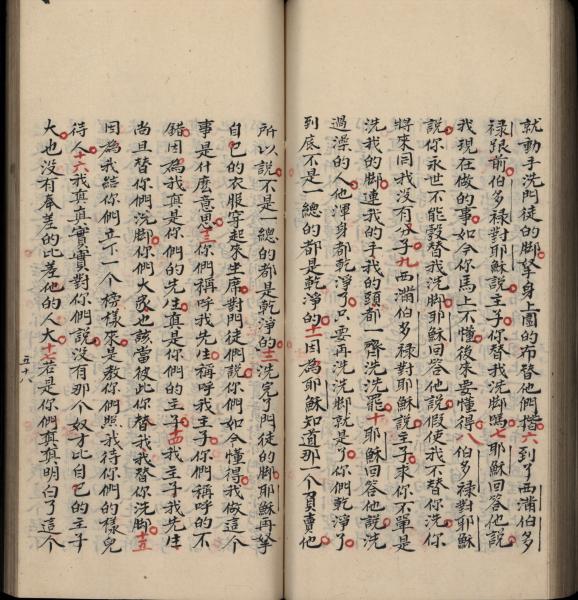 就動手洗門徒的脚拏身上圍的布替他們揩六到了西滿伯多
禄跟前伯多禄對耶穌說主子你替我洗脚嗎七耶穌回答他說
我現在做的事如今你馬上不懂後來要懂得八伯多禄對耶穌
說你永世不能彀替我洗脚耶穌回答他說假使我不替洗你
將來同我没有分子九西滿伯多禄對耶穌說主子來你不單是
洗我的脚連我的手我的頭都一齊洗洗罷十耶穌回答他說洗
過澡的人他渾身都乾淨了只要再洗洗脚就是了你們乾淨了
到底不是一總的都是乾淨的十一因為耶穌知道那一个負賣他
所以說不是一總的都是乾淨的十二洗完了門徒的脚耶穌再拏
自己的衣服穿起來坐席對門徒們說你們如今懂得我做這个
事是什麽意思十三你們稱呼我先生稱呼我主子你們稱呼的不
錯因為我真是你們的先生真是你們的主子十四我主子我先生
尚且替你們洗脚你們大家也該當彼此你替我我替你洗脚十五
因為我給你們立下一个榜樣來是教你們照我待你們的樣兒
待人十六我真真實實對你們說没有那个奴才比自己的主子
大也没有奉差的比差他的人大十七若是你們真真明白了這个
五十八